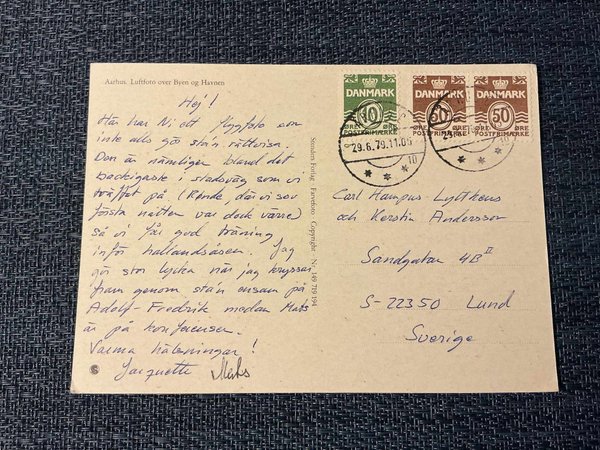 Aarhus. Luftfoto over Byen og Havnen
Hej!
Här har Ni ett flygfoto som
inte alls gör stan rättvisa.
Den är nämligen bland det
backigaste i stadsväg som vi
träffat på (Rønde, där vi sov
första natten var dock värre)
så vi får god träning
inför hallandsåsen. Jag
gör stor lycka när jag kryssar
fram genom stan ensam på
Adolf-Fredrik medan Mats
är på konferensen.
Varma hälsningar!
Jacquette Mats
Stenders Forlag Farvefoto Copyright Nr. 149 719 194
DANMARK
10
ØRE ØRE
POSTFRIMÆRKE
DANMARK
50
ØRE ØRE
POSTFRIMÆRKE
DANMARK
50
ØRE ØRE
POSTFRIMÆRKE
29.6.79.11.05
10
29.6.79
10
Carl Hampus Lyttkens
och Kerstin Andersson
Sandgatan 4B II
S-22350 Lund
Sverige